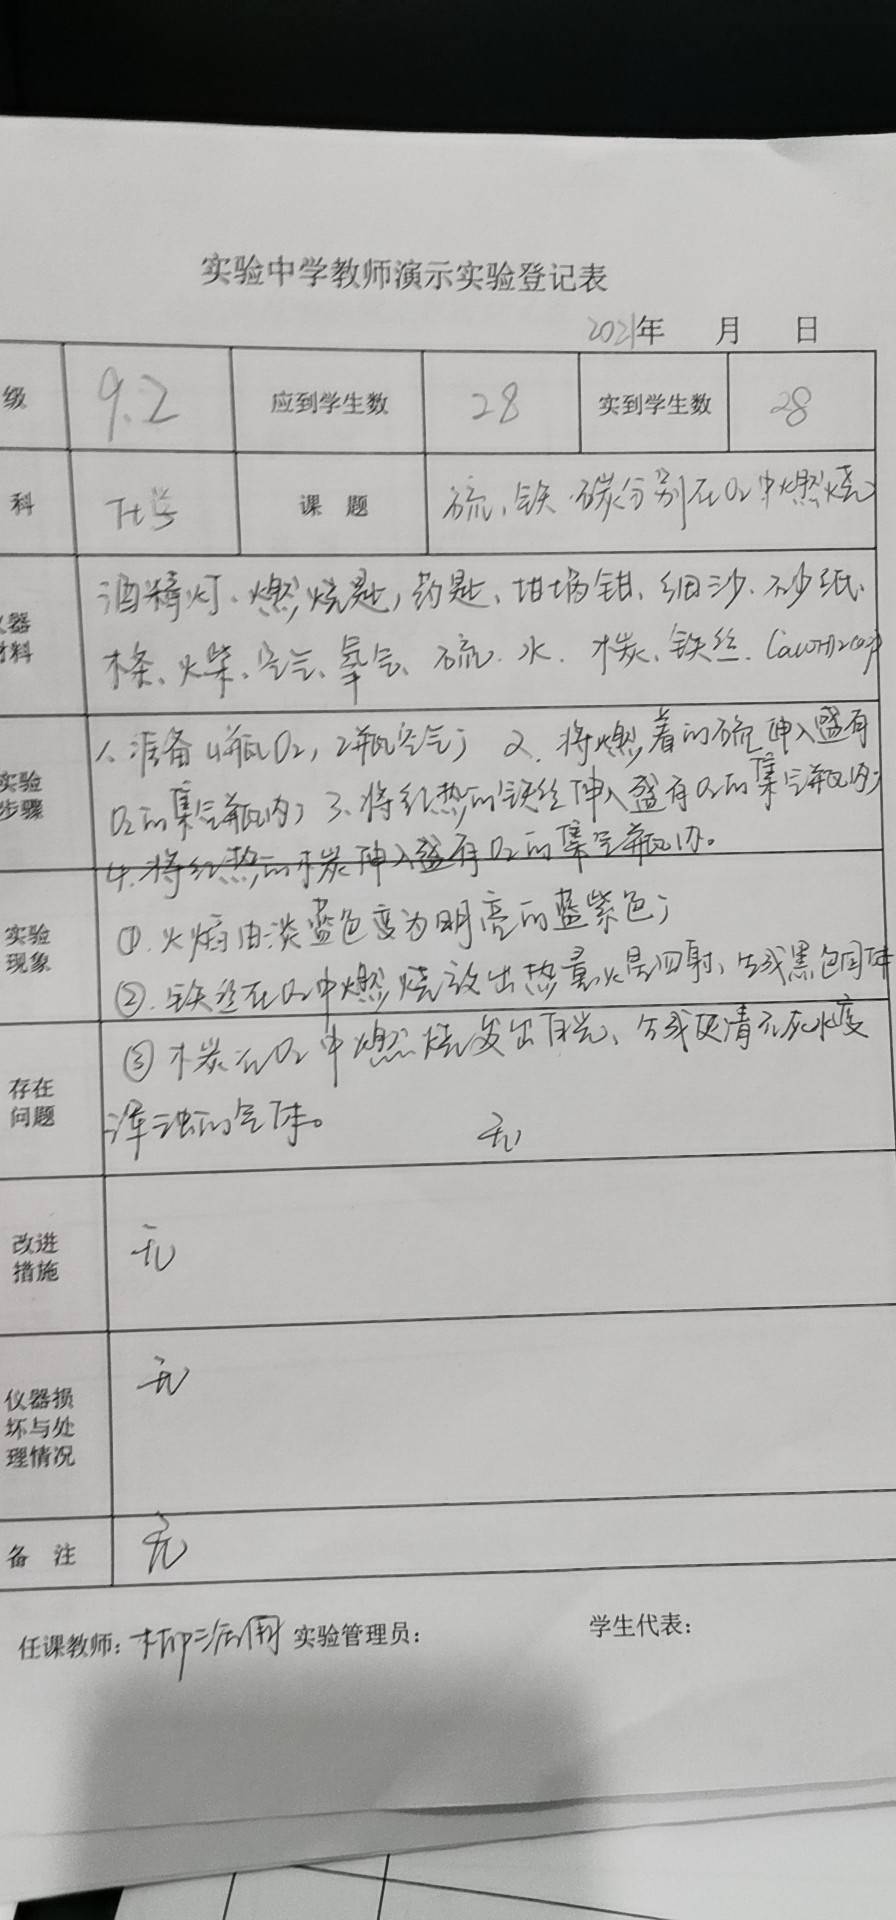 实验中学教师演示实验登记表
2021年 月 日
级 9.2 应到学生数 28 实到学生数 28
科 化学 课 题 硫、铁、碳分别在O2中燃烧
器
材料
酒精灯、燃烧匙,药匙、坩埚钳、细沙、砂纸、
木条、火柴、空气、氧气、硫、水、木炭、铁丝、Ca(OH)2
实验
步骤
1、准备4瓶O2,2瓶空气; 2、将燃着的硫伸入盛有
O2的集气瓶内; 3、将红热的铁丝伸入盛有O2的集气瓶内;
4、将红热的木炭伸入盛有O2的集气瓶内。
实验
现象
①、火焰由淡蓝色变为明亮的蓝紫色;
②、铁丝在O2中燃烧放出热量火星四射、生成黑色固体
③木炭在O2中燃烧发出白光、生成使澄清石灰水变
浑浊的气体。
存在
问题
无
改进
措施
无
仪器损
坏与处
理情况
无
备 注 无
任课教师: 实验管理员: 学生代表: